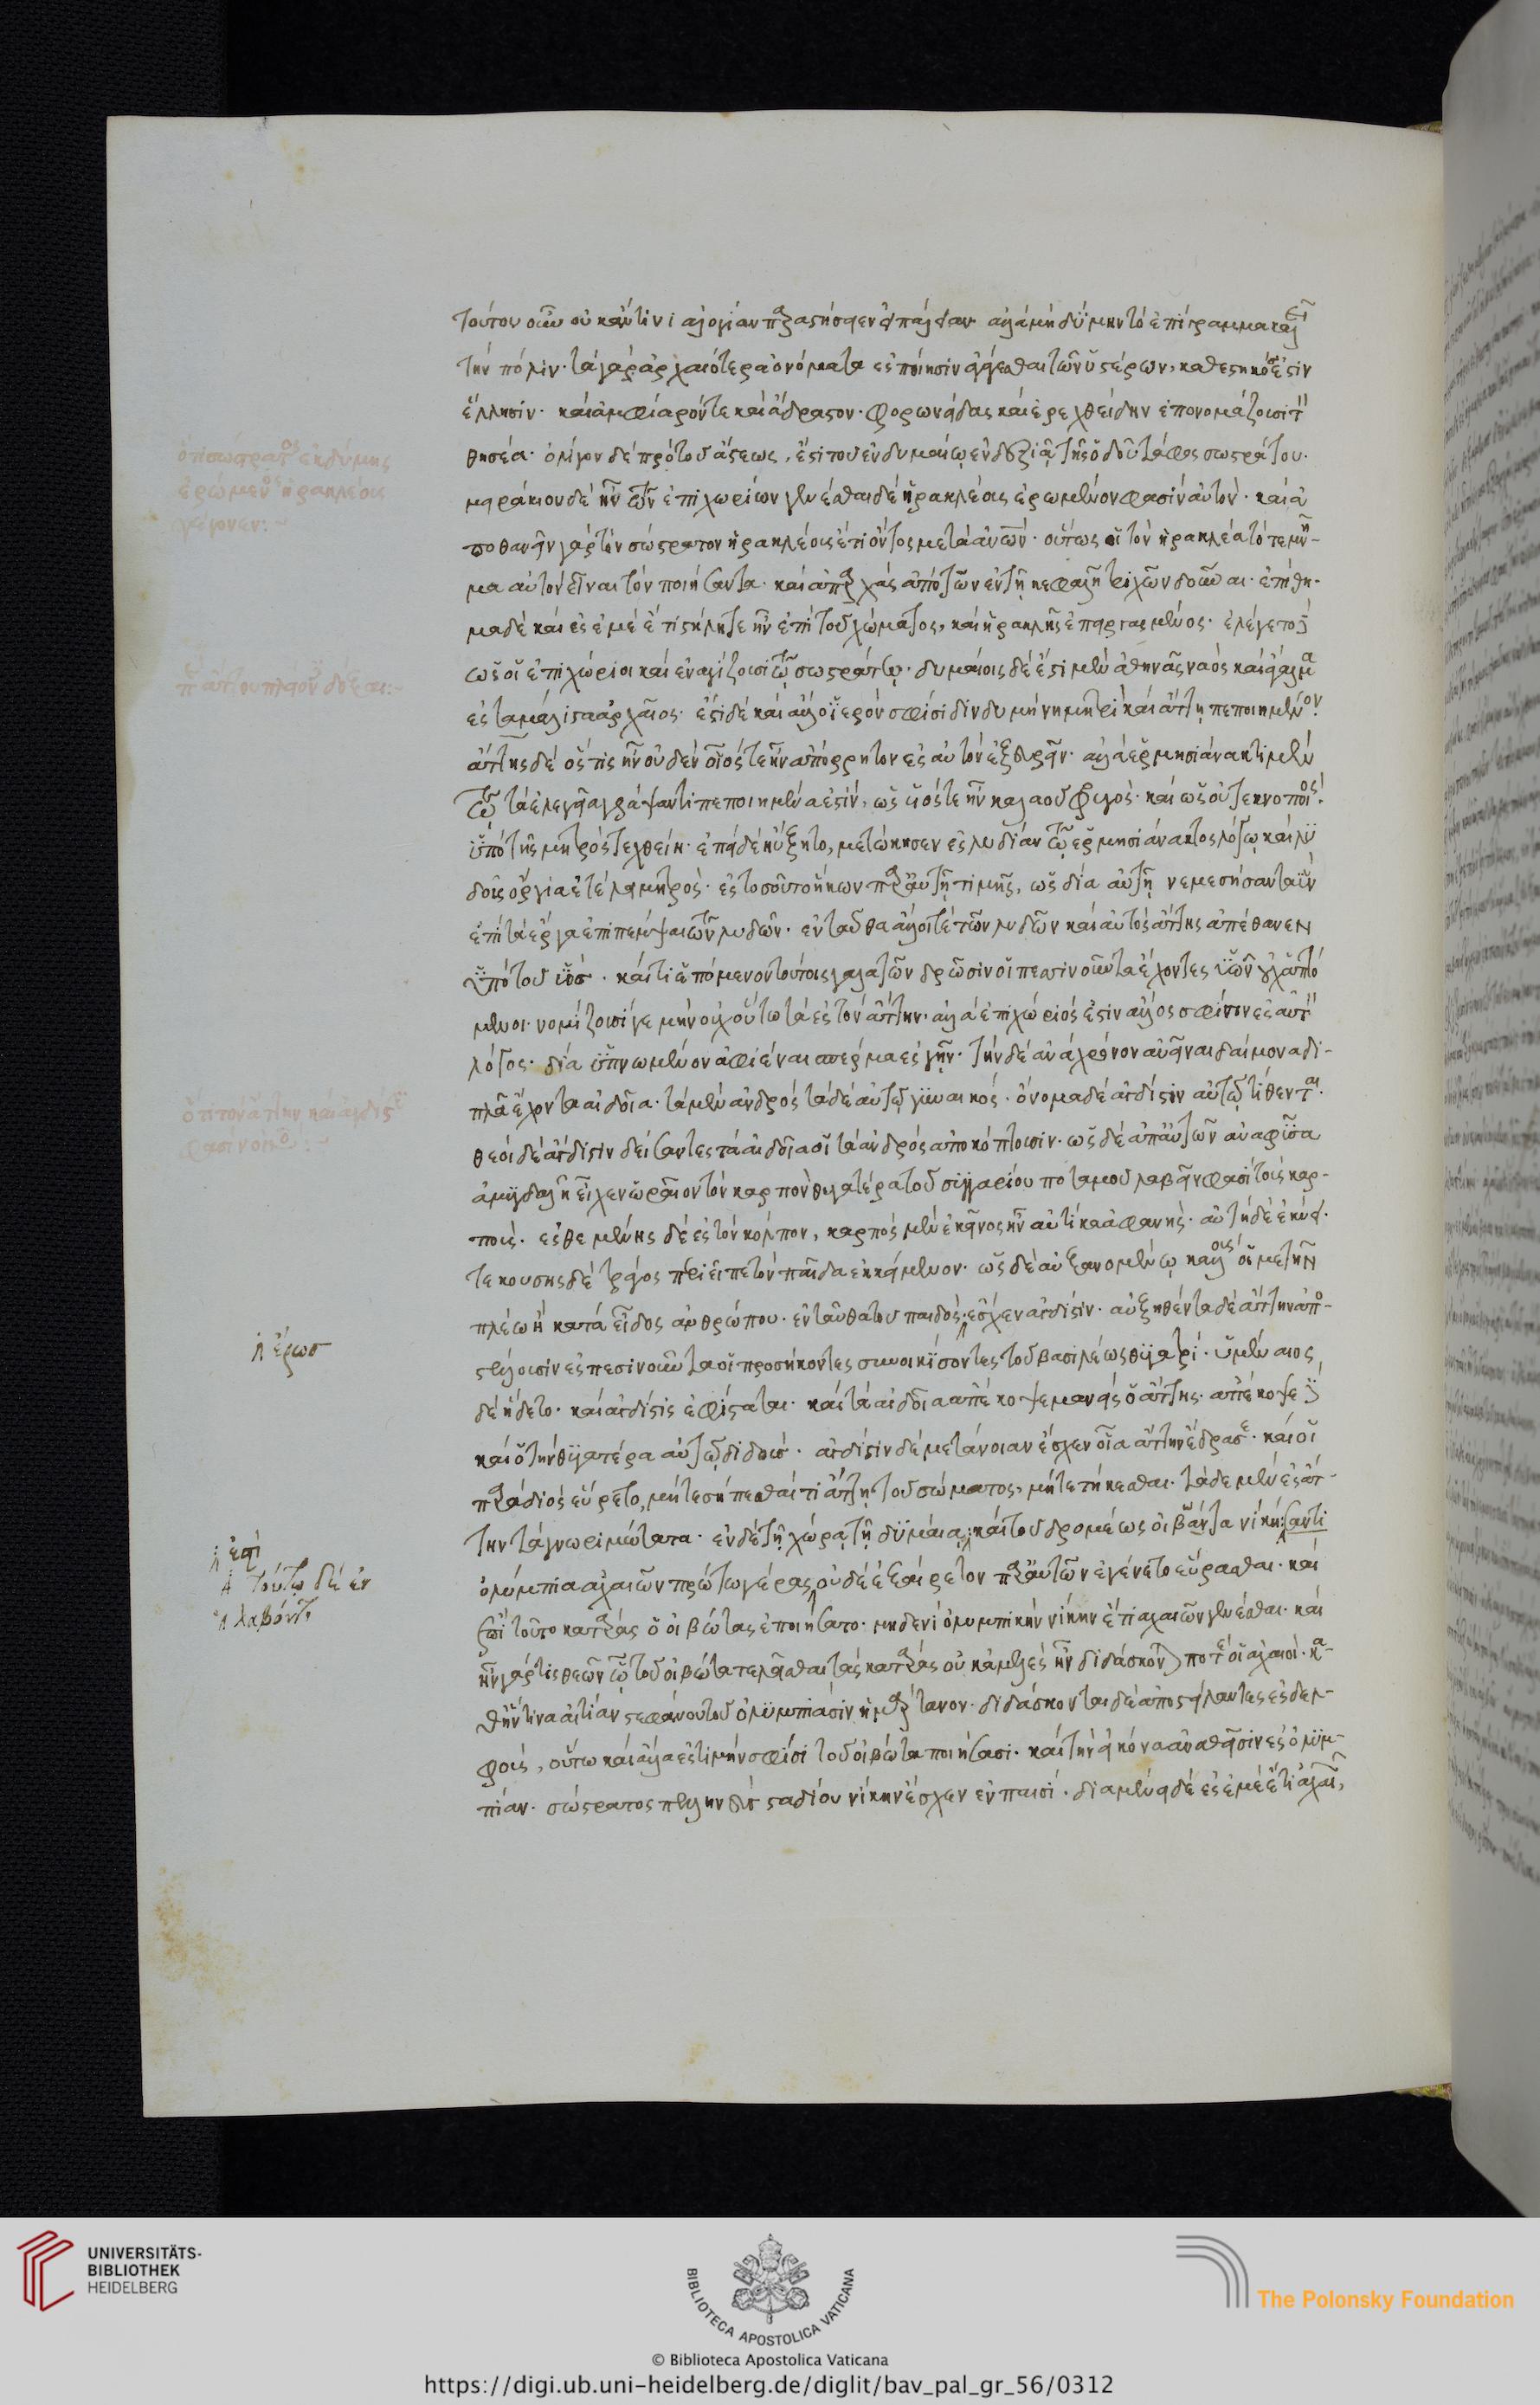 τούτου οὖν οὐκ ἄν τινι ἀλογίαν παραστήσειεν Δυμαίαν ἀλλὰ μὴ Δύμην τὸ ἐπίγραμμα καλεῖ
τὴν πόλιν· τὰ γὰρ ἀρχαιότερα ὀνόματα ἐς ποίησιν ἐπάγεσθαι τῶν ὑστέρων, καθεστηκός ἐστιν
ἕλλησιν· καὶ ἀμφιάραόν τε καὶ ἄδραστον φορωνείδας καὶ ἐρεχθείδην ἐπονομάζουσι τὸν
θησέα· ὀλίγον δὲ πρὸ τοῦ ἄστεως, ἔστι τοῦ ἐν δυμαίῳ ἐν δεξιᾷ τῆς ὁδοῦ τάφος σωστράτου·
μειράκιον δὲ ἦν τῶν ἐπιχωρίων γενέσθαι δὲ ἡρακλέους ἐρώμενον φασὶν αὐτόν· καὶ ἀ
ποθανεῖν γὰρ τὸν σώστρατον ἡρακλέους ἔτι ὄντος μετὰ ἀνθρώπων· οὕτως οἱ τὸν ἡρακλέα τό τε μνῆ-
μα αὐτὸν εἶναι τὸν ποιήσαντα· καὶ ἀπαρχὰς ἀπὸ τῶν ἐν τῇ κεφαλῇ τριχῶν δοῦναι· ἐπίθη-
μα δὲ καὶ ἐς ἐμὲ ἔτι στήλη τε ἦν ἐπὶ τοῦ χώματος, καὶ ἡρακλῆς ἐπειργασμένος· ἐλέγετο δὲ
ὡς οἱ ἐπιχώριοι καὶ ἐναγίζουσι τῷ σωστράτῳ· δυμαίοις δὲ ἔστι μὲν ἀθηνᾶς ναὸς καὶ ἄγαλμα
ἐς τὰ μάλιστα ἀρχαῖος· ἔστι δὲ καὶ ἄλλο ἱερόν σφισι δινδυμήνη μητρὶ καὶ ἄττῃ πεποιημένον·
ἄττης δὲ ὅστις ἦν οὐδὲν οἷός τε ἦν ἀπόρρητον ἐς αὐτὸν ἐξευρεῖν· ἀλλὰ ἑρμησιάνακτι μὲν
τῷ τὰ ἐλεγεῖα γράψαντι πεποιημένα ἐστίν, ὡς υἱός τε ἦν καλαοῦ φρυγός· καὶ ὡς οὐ τεκνοποιός·
ὑπὸ τῆς μητρὸς τεχθείη· ἐπεὶ δὲ ηὔξητο, μετῴκησεν ἐς λυδίαν τῷ ἑρμησιάνακτος λόγῳ καὶ λυ
δοῖς ὄργια ἐτέλει μητρός· ἐς τοσοῦτο ἥκων παρ' αὐτῇ τιμῆς, ὡς δία αὐτῇ νεμεσήσαντα ὗν
ἐπὶ τὰ ἔργα ἐπιπέμψαι τῶν λυδῶν· ἐνταῦθα ἄλλοι τε τῶν λυδῶν καὶ αὐτὸς ἄττης ἀπέθανεν
ὑπὸ τοῦ ὑός· καί τι ἑπόμενον τούτοις γαλατῶν δρῶσιν οἱ πεσινοῦντα ἔχοντες ὑῶν οὐχ ἁπτό
μενοι· νομίζουσί γε μὴν οὐχ οὕτω τὰ ἐς τὸν ἄττην· ἀλλὰ ἐπιχώριός ἐστιν ἄλλος σφίσιν ἐς αὐτὸν
λόγος· δία ὑπνωμένον ἀφιέναι σπέρμα ἐς γῆν· τὴν δὲ ἀνὰ χρόνον ἀνεῖναι δαίμονα δι-
πλᾶ ἔχοντα αἰδοῖα· τὰ μὲν ἀνδρὸς τὰ δὲ αὐτῷ γυναικός· ὄνομα δὲ ἄγδιστιν αὐτῷ τίθενται·
θεοὶ δὲ ἄγδιστιν δείσαντες τὰ αἰδοῖα οἱ τὰ ἀνδρὸς ἀποκόπτουσιν· ὡς δὲ ἀπ' αὐτῶν ἀναφῦσα
ἀμυγδαλῆ εἶχεν ὡραῖον τὸν καρπὸν θυγατέρα τοῦ σαγγαρίου ποταμοῦ λαβεῖν φασὶ τοῦ καρ-
ποῦ· ἐσθεμένης δὲ ἐς τὸν κόλπον, καρπὸς μὲν ἐκεῖνος ἦν αὐτίκα ἀφανής· αὐτὴ δὲ ἐκύει·
τεκούσης δὲ τράγος περιεῖπε τὸν παῖδα ἐκκείμενον· ὡς δὲ αὐξανομένῳ κάλλους οἱ μετῆν
πλέω ἢ κατὰ εἶδος ἀνθρώπου· ἐνταῦθα τοῦ παιδὸς ἔσχεν ἄγδιστιν· αὐξηθέντα δὲ ἄττην ἀπο-
στέλλουσιν ἐς πεσινοῦντα οἱ προσήκοντες συνοικήσοντες τοῦ βασιλέως θυγατρί· ὑμέναιος
δὲ ᾔδετο· καὶ ἄγδιστις ἐφίσταται· καὶ τὰ αἰδοῖα ἀπέκοψε μανεὶς ὁ ἄττης· ἀπέκοψε δὲ
καὶ ὁ τὴν θυγατέρα αὐτῷ διδούς· ἄγδιστιν δὲ μετάνοιαν ἔσχεν οἷα ἄττην ἔδρασε· καί οἱ
παρὰ διὸς εὕρετο, μήτε σήπεσθαί τι ἄττῃ τοῦ σώματος, μήτε τήκεσθαι· τάδε μὲν ἐς ἄτ-
την τὰ γνωριμώτατα· ἐν δὲ τῇ χώρᾳ τῇ δυμαίᾳ καὶ τοῦ δρομέως οἰβώτα νικήσαντι
ὀλύμπια ἀχαιῶν πρώτῳ γέρας οὐδὲ ἐξαίρετον παρ' αὐτῶν ἐγένετο εὕρασθαι· καὶ
ἐπὶ τοῦτο κατάρας ὁ οἰβώτας ἐποιήσατο· μηδενὶ ὀλυμπικὴν νίκην ἔτι ἀχαιῶν γενέσθαι· καὶ
ἦν γάρ τις θεῶν ᾧ τοῦ οἰβώτα τελεῖσθαι τὰς κατάρας οὐκ ἀμελὲς ἦν διδάσκονταί ποτε οἱ ἀχαιοί· κα-
θ' ἥντινα αἰτίαν στεφάνου τοῦ ὀλυμπιάσιν ἡμάρτανον· διδάσκονται δὲ ἀποστείλαντες ἐς δελ-
φούς, οὕτω καὶ ἄλλα ἐς τιμήν σφισι τοῦ οἰβώτα ποιήσασι· καὶ τὴν εἰκόνα ἀναθεῖσιν ἐς ὀλυμ-
πίαν· σώστρατος πελληνεὺς σταδίου νίκην ἔσχεν ἐν παισί· διαμένει δὲ ἐς ἐμὲ ἔτι ἀχαιῶν,
ὅτι σώστρατος ἐκ δύμης
ἐρώμενος ἡρακλέους
γέγονεν:~
ὅτι τὸν ἄττην καὶ ἄγδιστιν
ἔρως
ἐπὶ
τούτῳ δὲ ἐν
λαβόντι
UNIVERSITÄTS-
BIBLIOTHEK
HEIDELBERG
BIBLIOTECA APOSTOLICA VATICANA
The Polonsky Foundation
© Biblioteca Apostolica Vaticana
https://digi.ub.uni-heidelberg.de/diglit/bav_pal_gr_56/0312